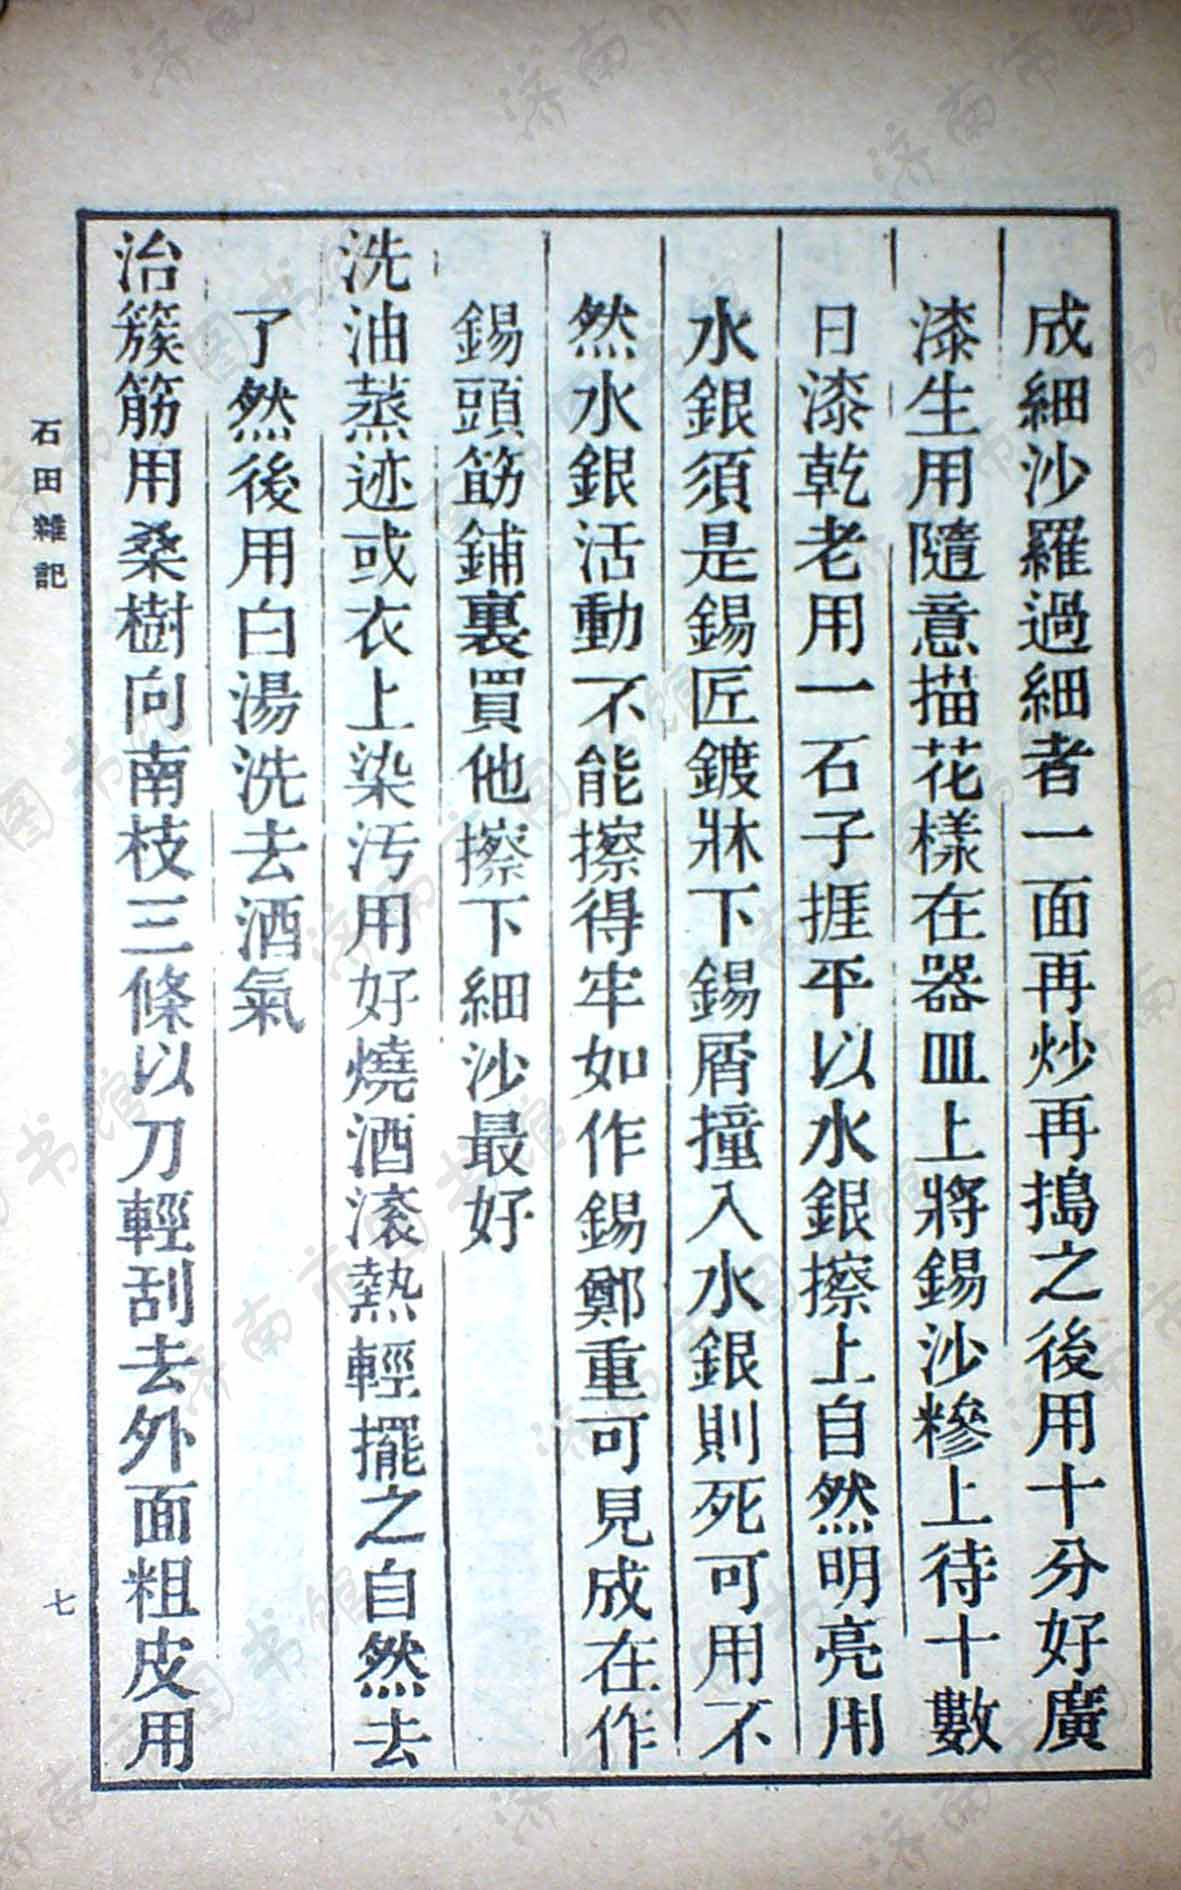 成細沙羅過細者一面再炒再搗之後用十分好廣
漆生用隨意描花樣在器皿上將錫沙糝上待十數
日漆乾老用一石子捱平以水銀擦上自然明亮用
水銀須是錫匠鍍牀下錫屑撞入水銀則死可用不
然水銀活動不能擦得牢如作錫鄭重可見成在作
錫頭筯鋪裏買他擦下細沙最好
洗油蒸迹或衣上染汚用好燒酒滚熱輕擺之自然去
了然後用白湯洗去酒氣
治簇筋用桑樹向南枝三條以刀輕刮去外面粗皮用
石田雜記
七
济南市图书馆